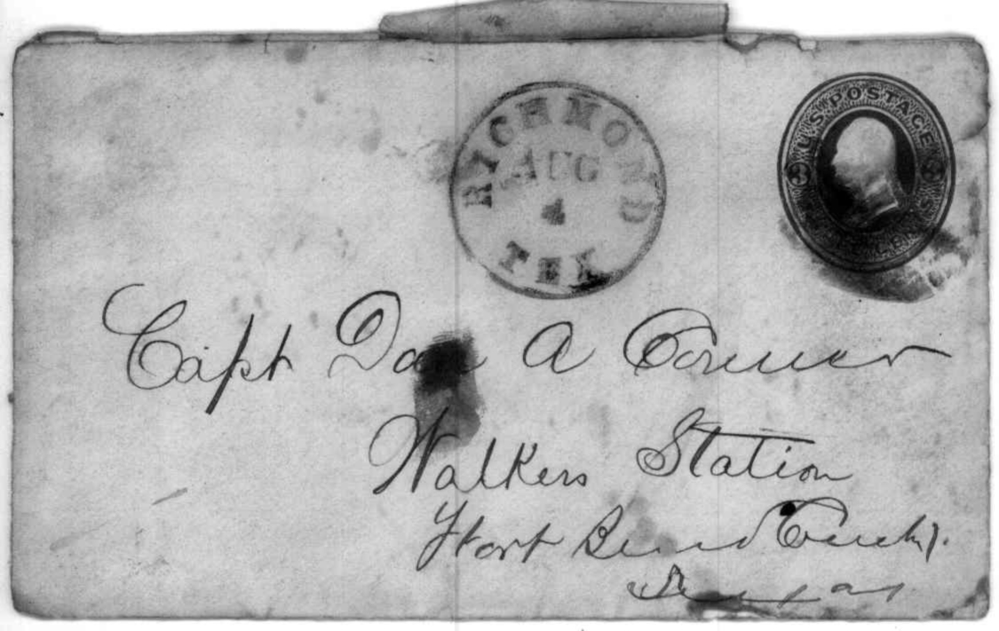 RICHMOND
AUG
4
TEX
U.S. POSTAGE
3 3
Capt Dan A Conner
Walkers Station
Fort Bend County.
Texas